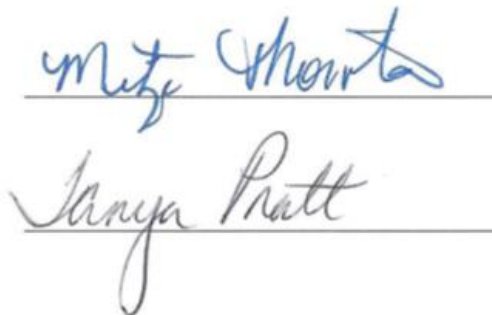 Mitzi Thornton
Tanya Pratt